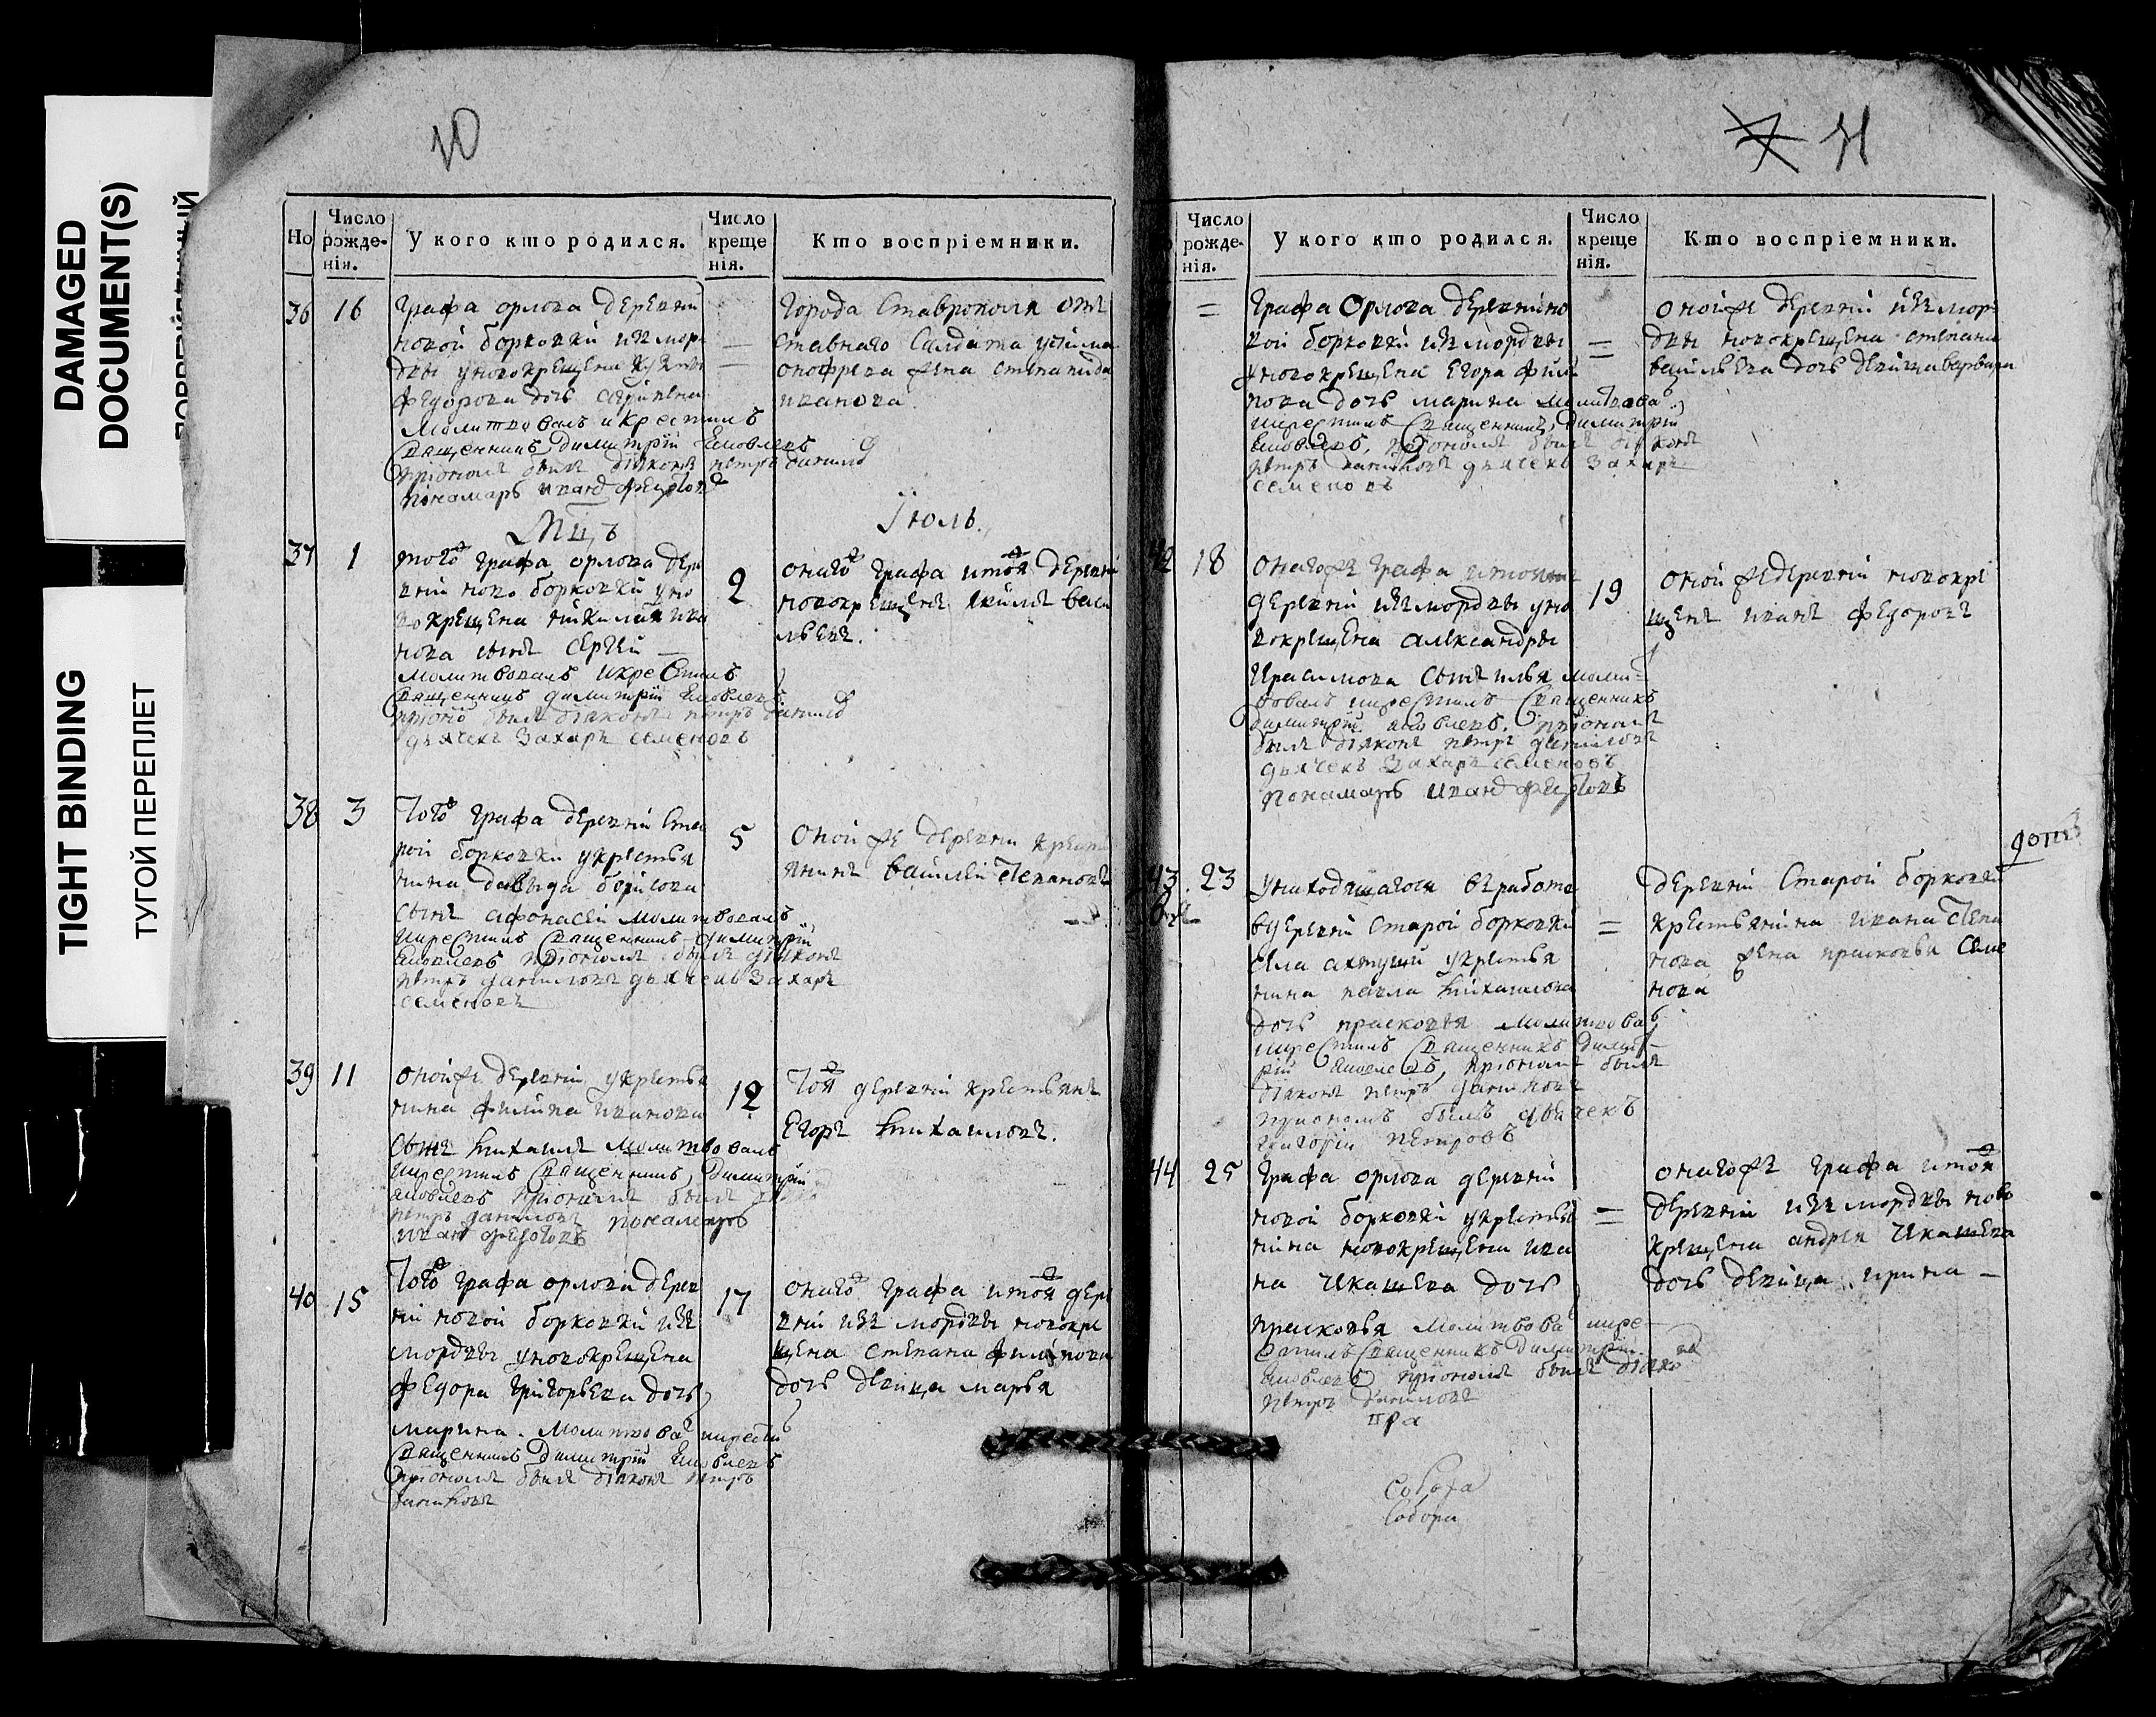 DAMAGED
DOCUMENT(S)
TIGHT BINDING
ТУГОЙ ПЕРЕПЛЕТ
10
Но
Число рожденія.
У кого кто родился.
Число крещенія.
Кто воспріемники.
36 16
графа орлова деревни
новой борковки изъ мор
двы у новокрещена
федорова дочь
молитвовалъ и крестилъ
священникъ димитрій яковлевъ
притомъ былъ діаконъ петръ данило
пономарь иванъ федоро
города ставрополя отъ
ставнаго салдата
онофрева жена степанида
иванова
Мцъ Іюль.
37 1
того графа орлова дере
вни ново борковки у но
вокрещена николая ива
нова сынъ сергей
молитвовалъ и крестилъ
священникъ димитрій яковлевъ
притомъ былъ діаконъ петръ данило
дьячекъ захаръ семеновъ
2
онаго графа и тоя деревни
новокрещенъ якимъ васи
льевъ.
38 3
того графа деревни ста
рой борковки у крестья
нина давыда борисова
сынъ афонасей молитвовалъ
и крестилъ священникъ димитрій
яковлевъ притомъ былъ діаконъ
петръ даниловъ дьячекъ захаръ
семеновъ
5
оной же деревни крестья
нинъ василей степановъ
39 11
оной же деревни у крестья
нина филипа иванова
сынъ михаилъ молитвовалъ
и крестилъ священникъ димитрій
яковлевъ притомъ былъ
петръ даниловъ пономарь
иванъ федоровъ
12
тоя деревни крестьянинъ
егоръ михаиловъ.
40 15
того графа орлова дерев
ни новой борковки изъ
мордвы у новокрещена
федора григорьева дочь
марина. молитвовалъ и крести
священникъ димитрій яковлевъ
притомъ былъ діаконъ петръ
даниловъ
17
онаго графа и тоя дере
вни изъ мордвы новокре
щена степана филипова
дочь девица марья
7 11
Число рожденія.
У кого кто родился.
Число крещенія.
Кто воспріемники.
=
графа орлова деревни но
вой борковки изъ мордвы
у новокрещена егора фили
пова дочь марина молитвова
и крестилъ священникъ димитрій
яковлевъ, притомъ былъ діаконъ
петръ даниловъ дьячекъ захаръ
семеновъ
=
оной же деревни изъ мор
двы новокрещена степана
васильева дочь девица варвара
42 18
онагожъ графа и тоя
деревни изъ мордвы у но
вокрещена александры
сынъ илья молит
вовалъ и крестилъ священникъ
димитрій яковлевъ. притомъ
былъ діаконъ петръ даниловъ
дьячекъ захаръ семеновъ
пономарь иванъ федоровъ
19
оной же деревни новокре
щенъ иванъ федоровъ
43. 23
у находящагося въ работе
въ деревни старой борковки
села ахтуши у крестья
нина павла михаилова
дочь прасковья молитвовал
и крестилъ священникъ димит
рій яковлевъ, притомъ былъ
діаконъ петръ даниловъ
притомъ былъ дьячекъ
григорій петровъ
=
деревни старой борковки
крестьянина ивана степа
нова жена прасковья семе
нова
44 25
графа орлова деревни
новой борковки у крестья
нина новокрещена ива
на чекашева дочь
прасковья молитвовал и кре
стилъ священникъ димитрій
яковлевъ притомъ былъ діако
петръ даниловъ
=
онагожъ графа и тоя
деревни изъ мордвы ново
крещена андрея чекашева
дочь девица ирина